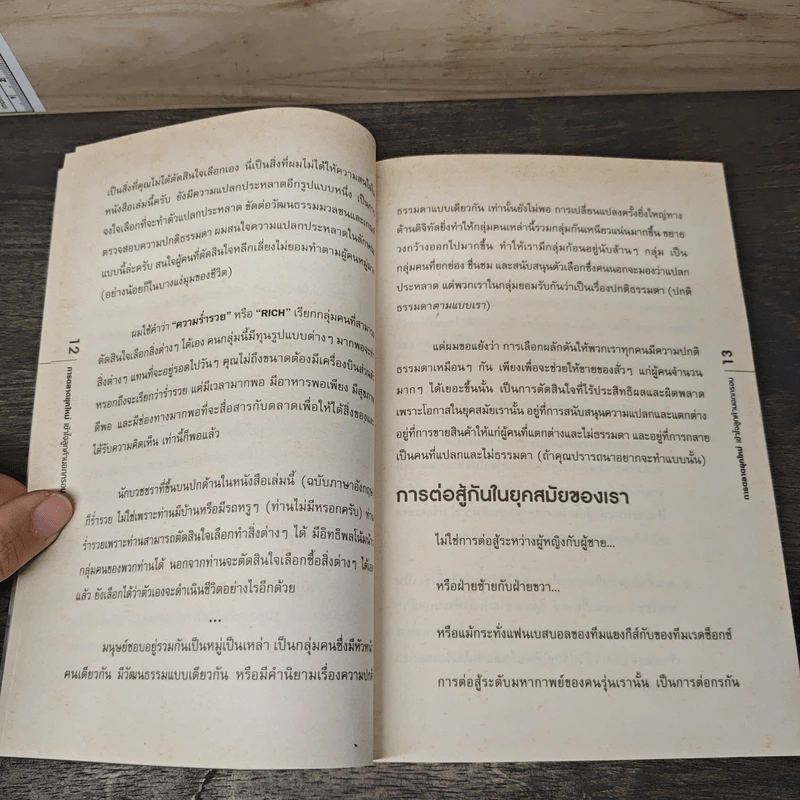 เป็นสิ่งที่คุณไม่ได้ตัดสินใจเลือกเอง นี่เป็นสิ่งที่ผมไม่ได้ให้ความสนใจใน
หนังสือเล่มนี้ครับ ยังมีความแปลกประหลาดอีกรูปแบบหนึ่ง
จงใจเลือกที่จะทำตัวแปลกประหลาด ขัดต่อวัฒนธรรมมวลชนและ
ตรวจสอบความปกติธรรมดา ผมสนใจความแปลกประหลาดใน
แบบนี้ล่ะครับ สนใจผู้คนที่ตัดสินใจหลีกเลี่ยงไม่ยอมทำตามผู้คนหมู่มาก
(อย่างน้อยก็ในบางแง่มุมของชีวิต)
ผมใช้คำว่า “ความร่ำรวย” หรือ “RICH” เรียกกลุ่มคนที่
ตัดสินใจเลือกสิ่งต่างๆ ได้เอง คนกลุ่มนี้มีทุนรูปแบบต่างๆ มากพอจะ
สิ่งต่างๆ แทนที่จะอยู่รอดไปวันๆ คุณไม่ถึงขนาดต้องมีเครื่องบินส่วนตัว
หรอกถึงจะเรียกว่าร่ำรวย แค่มีเวลามากพอ มีอาหารพอเพียง มีสุขภาพ
ดีพอ และมีช่องทางมากพอที่จะสื่อสารกับตลาดเพื่อให้ได้สิ่งของและ
ได้รับความคิดเห็น เท่านี้ก็พอแล้ว
นักบวชชราที่ขึ้นบนปกด้านในหนังสือเล่มนี้ (ฉบับภาษาอังกฤษ)
ก็ร่ำรวย ไม่ใช่เพราะท่านมีบ้านหรือมีรถหรู (ท่านไม่มีหรอกครับ)
ร่ำรวยเพราะท่านสามารถตัดสินใจเลือกทำสิ่งต่างๆ ได้ มีอิทธิพลโน้มน้าว
กลุ่มคนของพวกท่านได้ นอกจากท่านจะตัดสินใจเลือกซื้อสิ่งต่างๆ ได้เอง
แล้ว ยังเลือกได้ว่าตัวเองจะดำเนินชีวิตอย่างไรอีกด้วย
...
มนุษย์ชอบอยู่รวมกันเป็นหมู่เป็นเหล่า เป็นกลุ่มคนซึ่งมีหัวหน้า
คนเดียวกัน มีวัฒนธรรมแบบเดียวกัน หรือมีคำนิยามเรื่องความปกติ
12
การตลาดยุคใหม่ เข้าใจลูกค้านอกกรอบ
ธรรมดาแบบเดียวกัน เท่านั้นยังไม่พอ การเปลี่ยนแปลงครั้งยิ่งใหญ่ทาง
ด้านดิจิทัลยิ่งทำให้กลุ่มคนเหล่านี้รวมกลุ่มกันเหนียวแน่นมากขึ้น ขยาย
วงกว้างออกไปมากขึ้น ทำให้เรามีกลุ่มก้อนอยู่นับล้านๆ กลุ่ม เป็น
กลุ่มคนที่ยกย่อง ชื่นชม และสนับสนุนตัวเลือกซึ่งคนนอกจะมองว่าแปลก
ประหลาด แต่พวกเราในกลุ่มยอมรับกันว่าเป็นเรื่องปกติธรรมดา (ปกติ
ธรรมดาตามแบบเรา)
แต่ผมขอแย้งว่า การเลือกผลักดันให้พวกเราทุกคนมีความปกติ
ธรรมดาเหมือนๆ กัน เพียงเพื่อจะช่วยให้ขายของสั่วๆ แก่ผู้คนจำนวน
มากๆ ได้เยอะขึ้นนั้น เป็นการตัดสินใจที่ไร้ประสิทธิผลและผิดพลาด
เพราะโอกาสในยุคสมัยเรานั้น อยู่ที่การสนับสนุนความแปลกและแตกต่าง
อยู่ที่การขายสินค้าให้แก่ผู้คนที่แตกต่างและไม่ธรรมดา และอยู่ที่การกลาย
เป็นคนที่แปลกและไม่ธรรมดา (ถ้าคุณปรารถนาอยากจะทำแบบนั้น)
การต่อสู้กันในยุคสมัยของเรา
ไม่ใช่การต่อสู้ระหว่างผู้หญิงกับผู้ชาย...
หรือฝ่ายซ้ายกับฝ่ายขวา...
หรือแม้กระทั่งแฟนเบสบอลของทีมแยงกีส์กับของทีมเรดซ็อกซ์
การต่อสู้ระดับมหากาพย์ของคนรุ่นเรานั้น เป็นการต่อกรกัน
13
การตลาดยุคใหม่ เข้าใจลูกค้านอกกรอบ